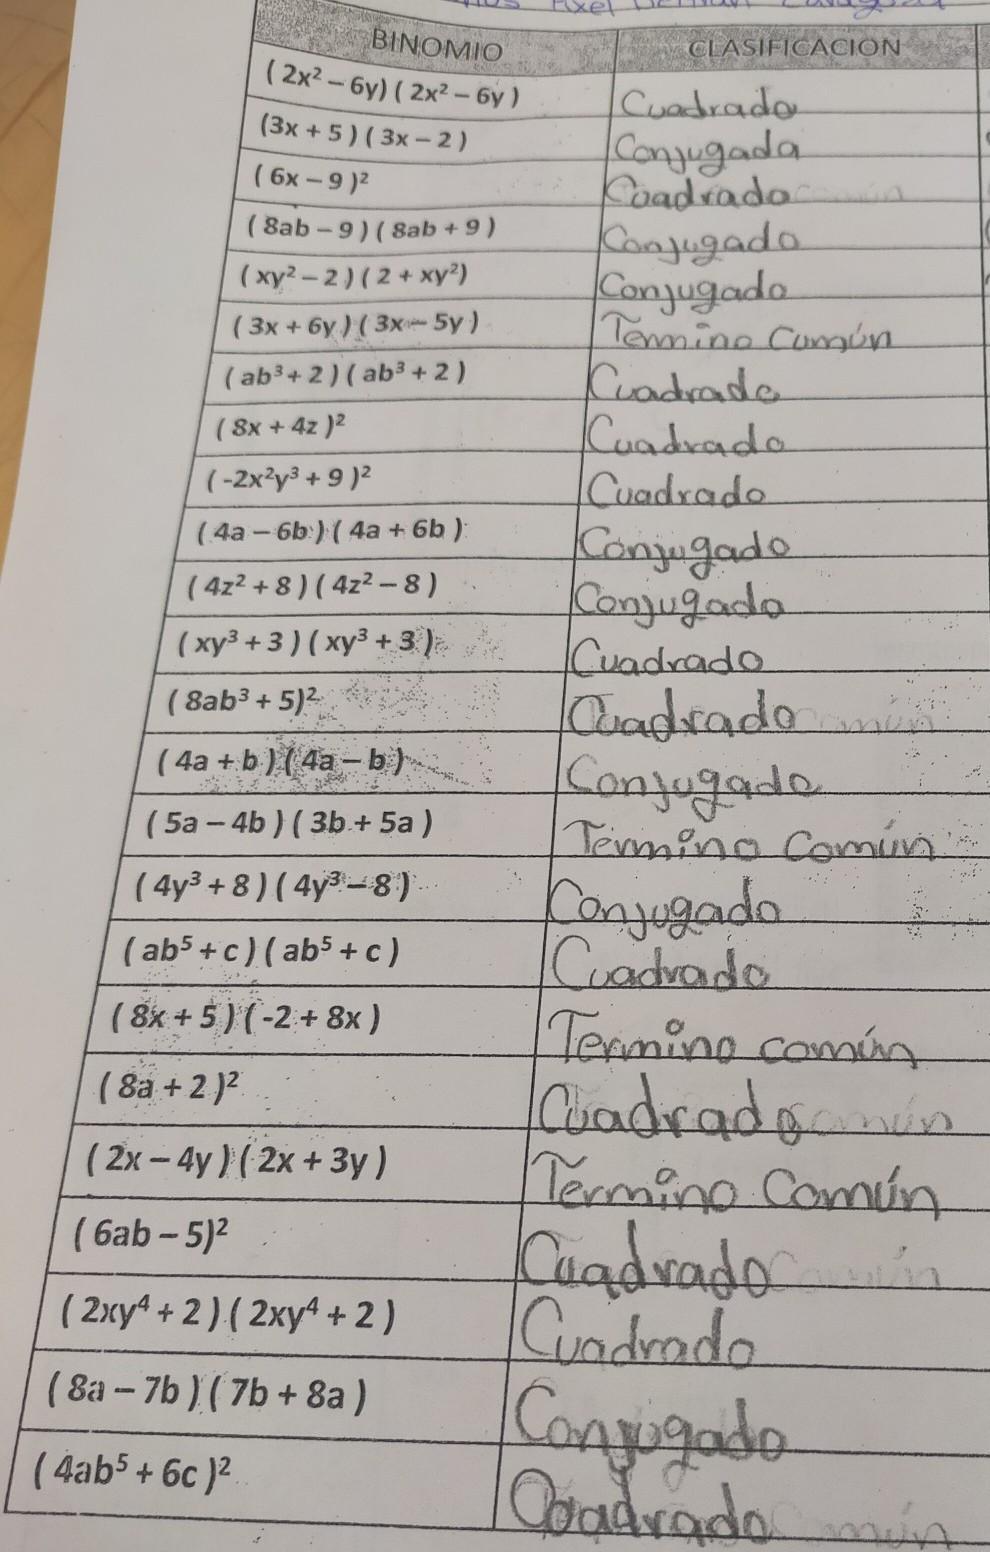 Axel
BINOMIO CLASIFICACION
( 2x² – 6y) ( 2x² – 6y ) Cuadrado
(3x + 5 ) ( 3x – 2 ) Conjugada
( 6x – 9 )² Coadrado
( 8ab – 9 ) ( 8ab + 9 ) Conjugado
( xy² – 2 ) ( 2 + xy²) Conjugado
( 3x + 6y ) ( 3x – 5y ) Termino Comun
( ab³ + 2 ) ( ab³ + 2 ) Cuadrado
( 8x + 4z )² Cuadrado
( -2x²y³ + 9 )² Cuadrado
( 4a – 6b ) ( 4a + 6b ) Conjugado
( 4z² + 8 ) ( 4z² – 8 ) Conjugado
( xy³ + 3 ) ( xy³ + 3 ) Cuadrado
( 8ab³ + 5)² Cuadrado
( 4a + b ) ( 4a – b ) Conjugado
( 5a – 4b ) ( 3b + 5a ) Termino Común
( 4y³ + 8 ) ( 4y³ – 8 ) Conjugado
( ab⁵ + c ) ( ab⁵ + c ) Cuadrado
( 8x + 5 ) ( -2 + 8x ) Termino común
( 8a + 2 )² Cuadrado
( 2x – 4y ) ( 2x + 3y ) Termino Común
( 6ab – 5)² Cuadrado
( 2xy⁴ + 2 ) ( 2xy⁴ + 2 ) Cuadrado
( 8a – 7b ) ( 7b + 8a ) Conjugado
( 4ab⁵ + 6c )² Coadrado